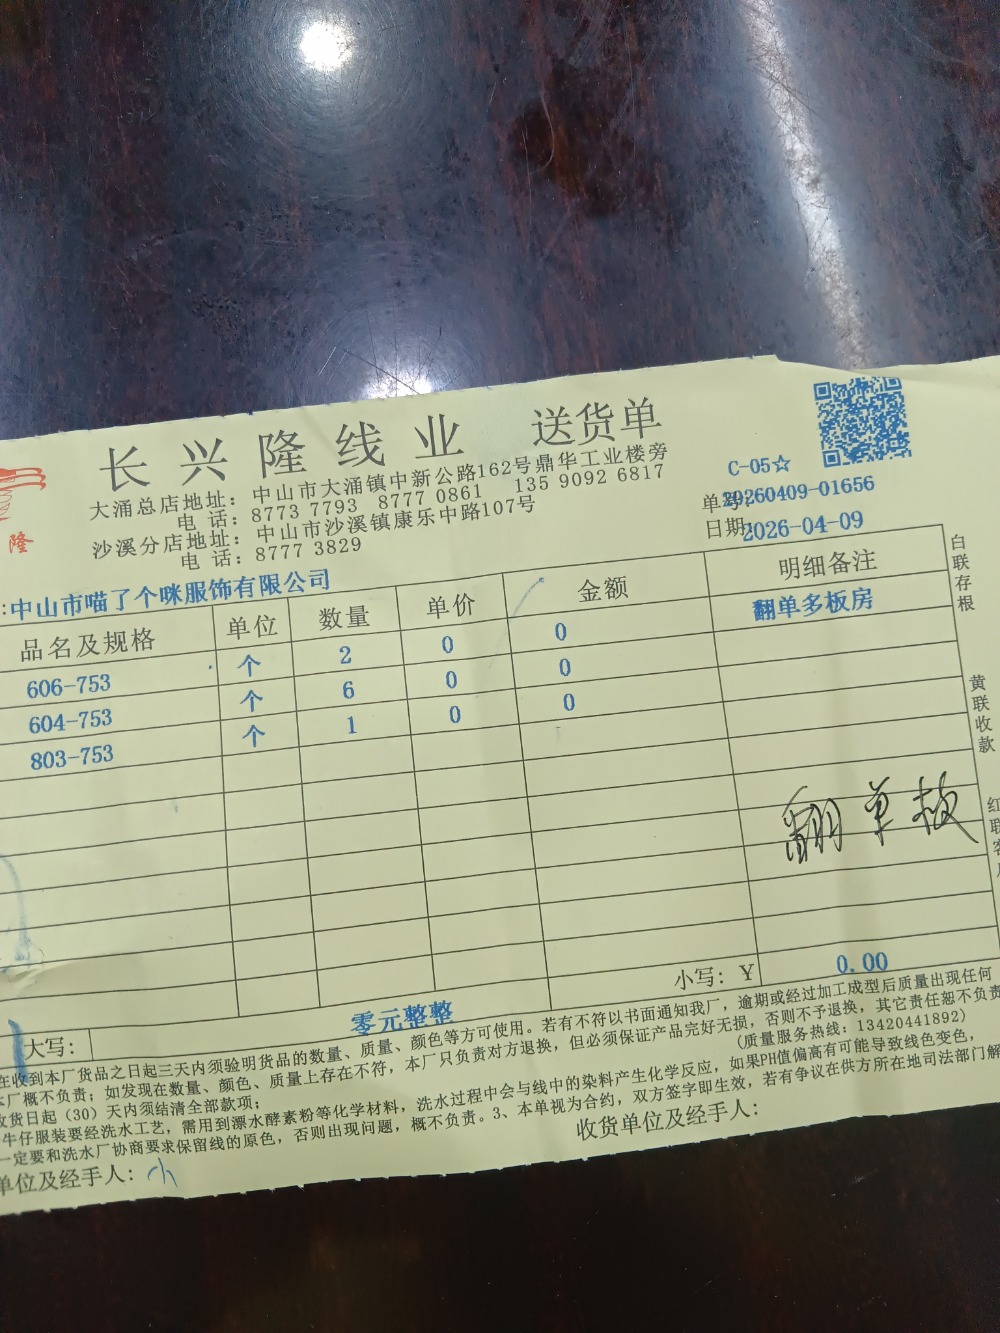 长兴隆线业 送货单
大涌总店地址：中山市大涌镇中新公路162号鼎华工业楼旁
电 话：8773 7793 8777 0861 135 9092 6817
沙溪分店地址：中山市沙溪镇康乐中路107号
电 话：8777 3829
隆
C-05☆
单号:20260409-01656
日期:2026-04-09
:中山市喵了个咪服饰有限公司
品名及规格 单位 数量 单价 金额 明细备注
606-753 个 2 0 0 翻单多板房
604-753 个 6 0 0
803-753 个 1 0 0
翻单板
小写：¥ 0.00
大写： 零元整整
在收到本厂货品之日起三天内须验明货品的数量、质量、颜色等方可使用。若有不符以书面通知我厂，逾期或经过加工成型后质量出现任何
厂概不负责；如发现在数量、颜色、质量上存在不符，本厂只负责对方退换，但必须保证产品完好无损，否则不予退换，其它责任恕不负责
收货日起（30）天内须结清全部款项；
（质量服务热线：13420441892）
牛仔服装要经洗水工艺，需用到漂水酵素粉等化学材料，洗水过程中会与线中的染料产生化学反应，如果PH值偏高有可能导致线色变色，
一定要和洗水厂协商要求保留线的原色，否则出现问题，概不负责。3、本单视为合约，双方签字即生效，若有争议在供方所在地司法部门解
单位及经手人：小
收货单位及经手人：
白联存根
黄联收款
红联客